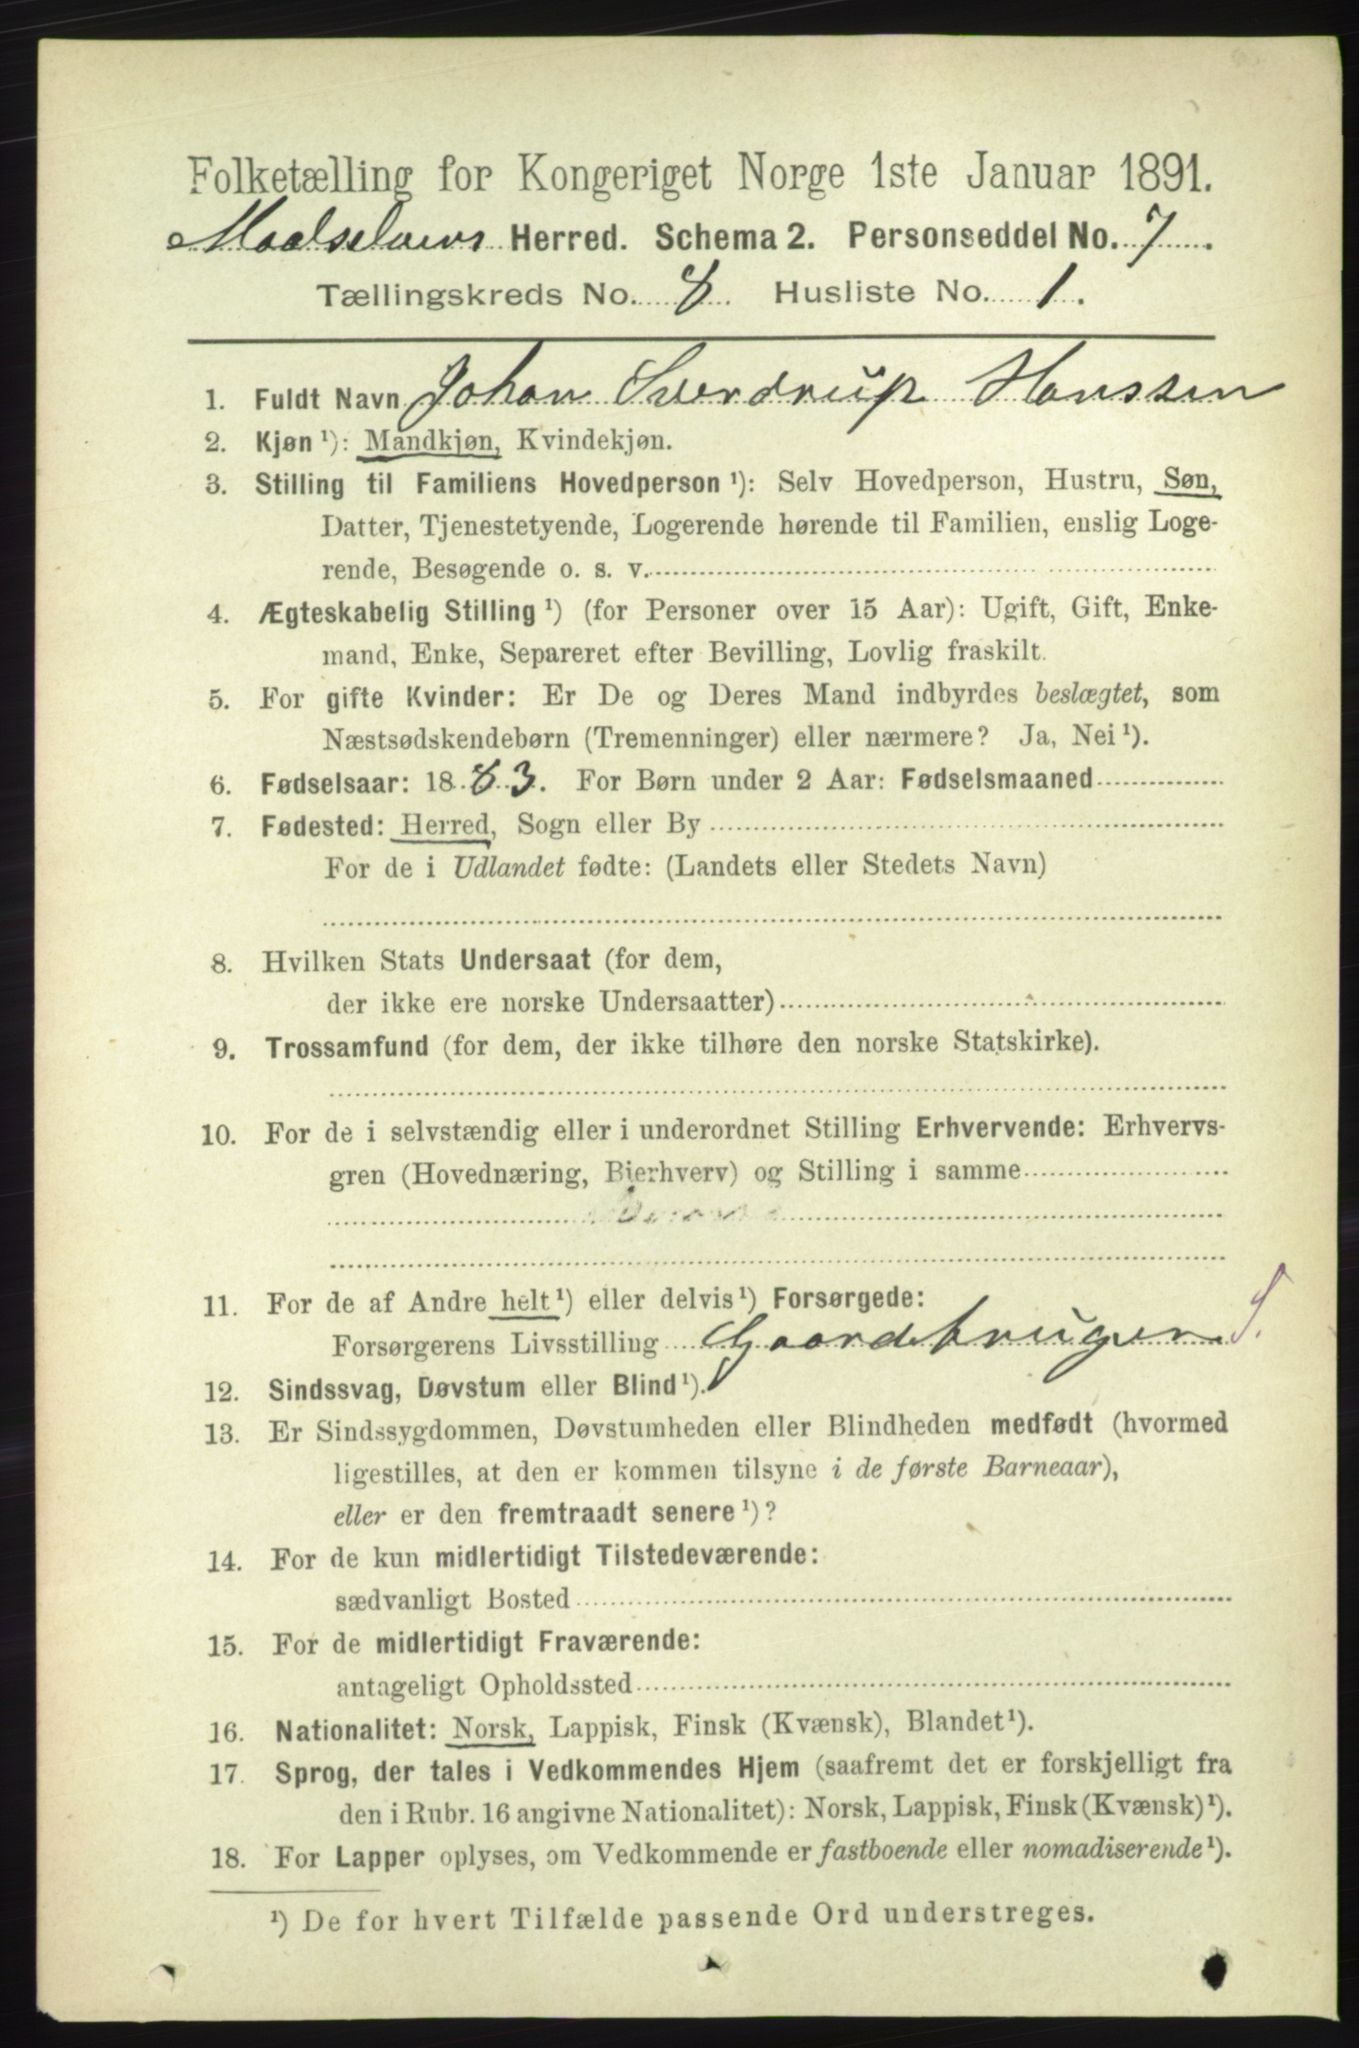 Folketælling for Kongeriget Norge 1ste Januar 1891.
Maalselvens Herred. Schema 2. Personseddel No. 7
Tællingskreds No. 8 Husliste No. 1.
1. Fuldt Navn Johan Sverdrup Hanssen
2. Kjøn ¹): Mandkjøn, Kvindekjøn.
3. Stilling til Familiens Hovedperson ¹): Selv Hovedperson, Hustru, Søn,
Datter, Tjenestetyende, Logerende hørende til Familien, enslig Loge-
rende, Besøgende o. s. v.
4. Ægteskabelig Stilling ¹) (for Personer over 15 Aar): Ugift, Gift, Enke-
mand, Enke, Separeret efter Bevilling, Lovlig fraskilt.
5. For gifte Kvinder: Er De og Deres Mand indbyrdes beslægtet, som
Næstsødskendebørn (Tremenninger) eller nærmere? Ja, Nei ¹).
6. Fødselsaar: 1883. For Børn under 2 Aar: Fødselsmaaned
7. Fødested: Herred, Sogn eller By
For de i Udlandet fødte: (Landets eller Stedets Navn)
8. Hvilken Stats Undersaat (for dem,
der ikke ere norske Undersaatter)
9. Trossamfund (for dem, der ikke tilhøre den norske Statskirke).
10. For de i selvstændig eller i underordnet Stilling Erhvervende: Erhvervs-
gren (Hovednæring, Bierhverv) og Stilling i samme
11. For de af Andre helt ¹) eller delvis ¹) Forsørgede:
Forsørgerens Livsstilling Gaardbruger S.
12. Sindssvag, Døvstum eller Blind ¹).
13. Er Sindssygdommen, Døvstumheden eller Blindheden medfødt (hvormed
ligestilles, at den er kommen tilsyne i de første Barneaar),
eller er den fremtraadt senere ¹)?
14. For de kun midlertidigt Tilstedeværende:
sædvanligt Bosted
15. For de midlertidigt Fraværende:
antageligt Opholdssted
16. Nationalitet: Norsk, Lappisk, Finsk (Kvænsk), Blandet ¹).
17. Sprog, der tales i Vedkommendes Hjem (saafremt det er forskjelligt fra
den i Rubr. 16 angivne Nationalitet): Norsk, Lappisk, Finsk (Kvænsk) ¹).
18. For Lapper oplyses, om Vedkommende er fastboende eller nomadiserende ¹).
¹) De for hvert Tilfælde passende Ord understreges.